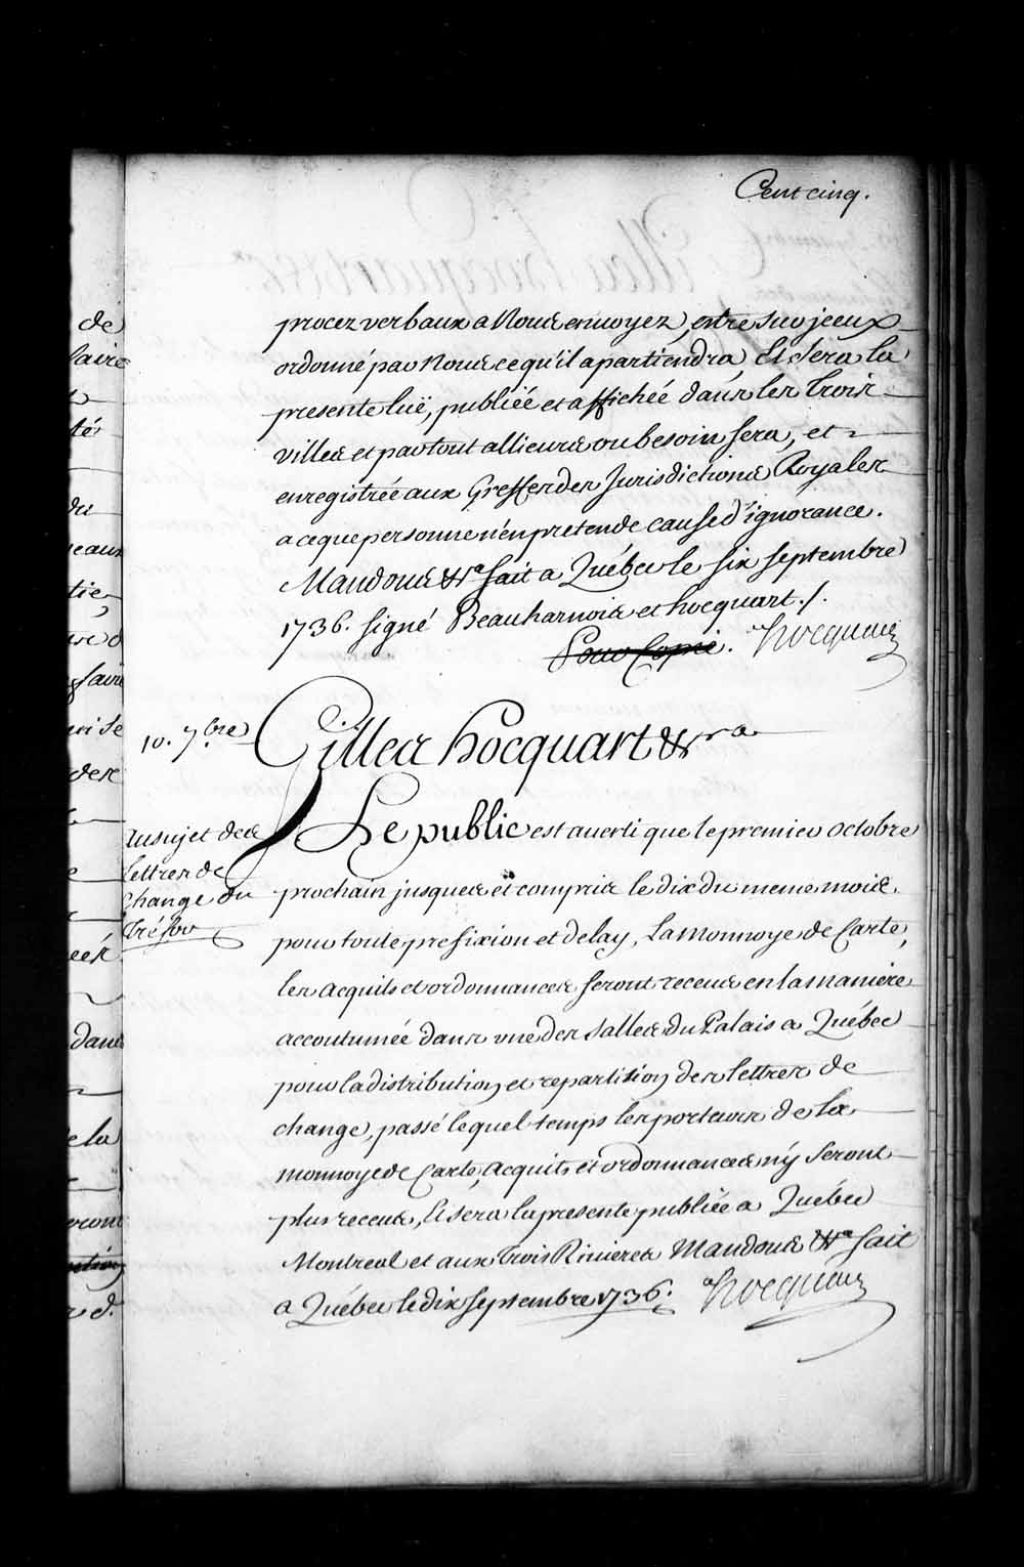 Cent cinq.
procez verbaux a Nous envoyez, estre sur jceux
ordonné par Nous ce qu'il apartiendra, Et Sera la
presente luë, publiée et affichée dans les Trois
villes et partout allieurs ou besoin sera, et
enregistrée aux Greffes des Jurisdictions Royales
a ce que personne n'en pretende cause d'ignorance.
Mandons &ra fait a Québec le six septembre
1736. signé Beauharnois et hocquart ./.
Pour Copie. hocquart
10. 7.bre
Gilles hocquart &ra
Au sujet des
lettres de
change du
Trésor
Le public est averti que le premier octobre
prochain jusques et compris le dix du meme mois
pour toute prefixion et delay, La Monnoye de Carte,
les acquits et ordonnances seront receus en la maniere
accoutumée dans une des salles du Palais a Québec
pour la distribution et repartition des lettres de
change, passé lequel temps les porteurs de la
monnoye de Carte, acquits et ordonnances n'y seront
plus receus, Et sera la presente publiée a Québec
Montreal et aux trois Rivieres Mandons &ra fait
a Québec le dix septembre 1736. hocquart
de
faire
té
du
eaux
tie
faire
rise
des
dans
de la
eront